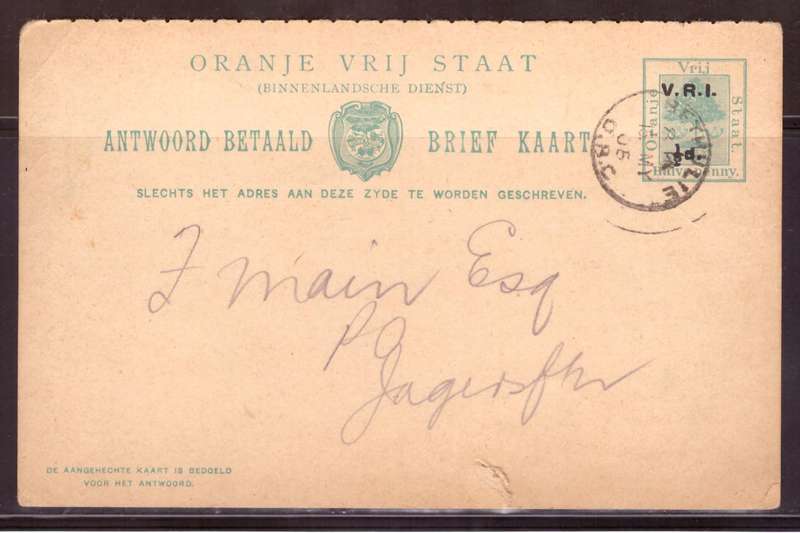 ORANJE VRIJ STAAT
(BINNENLANDSCHE DIENST)
ANTWOORD BETAALD BRIEF KAART
SLECHTS HET ADRES AAN DEZE ZYDE TE WORDEN GESCHREVEN.
Vrij
Oranje
Staat.
V.R.I.
½d.
Halve Penny.
BETHULIE
MY
05
O.R.C.
F Main Esq
PO
Jagersftn
DE AANGEHECHTE KAART IS BEDOELD
VOOR HET ANTWOORD.